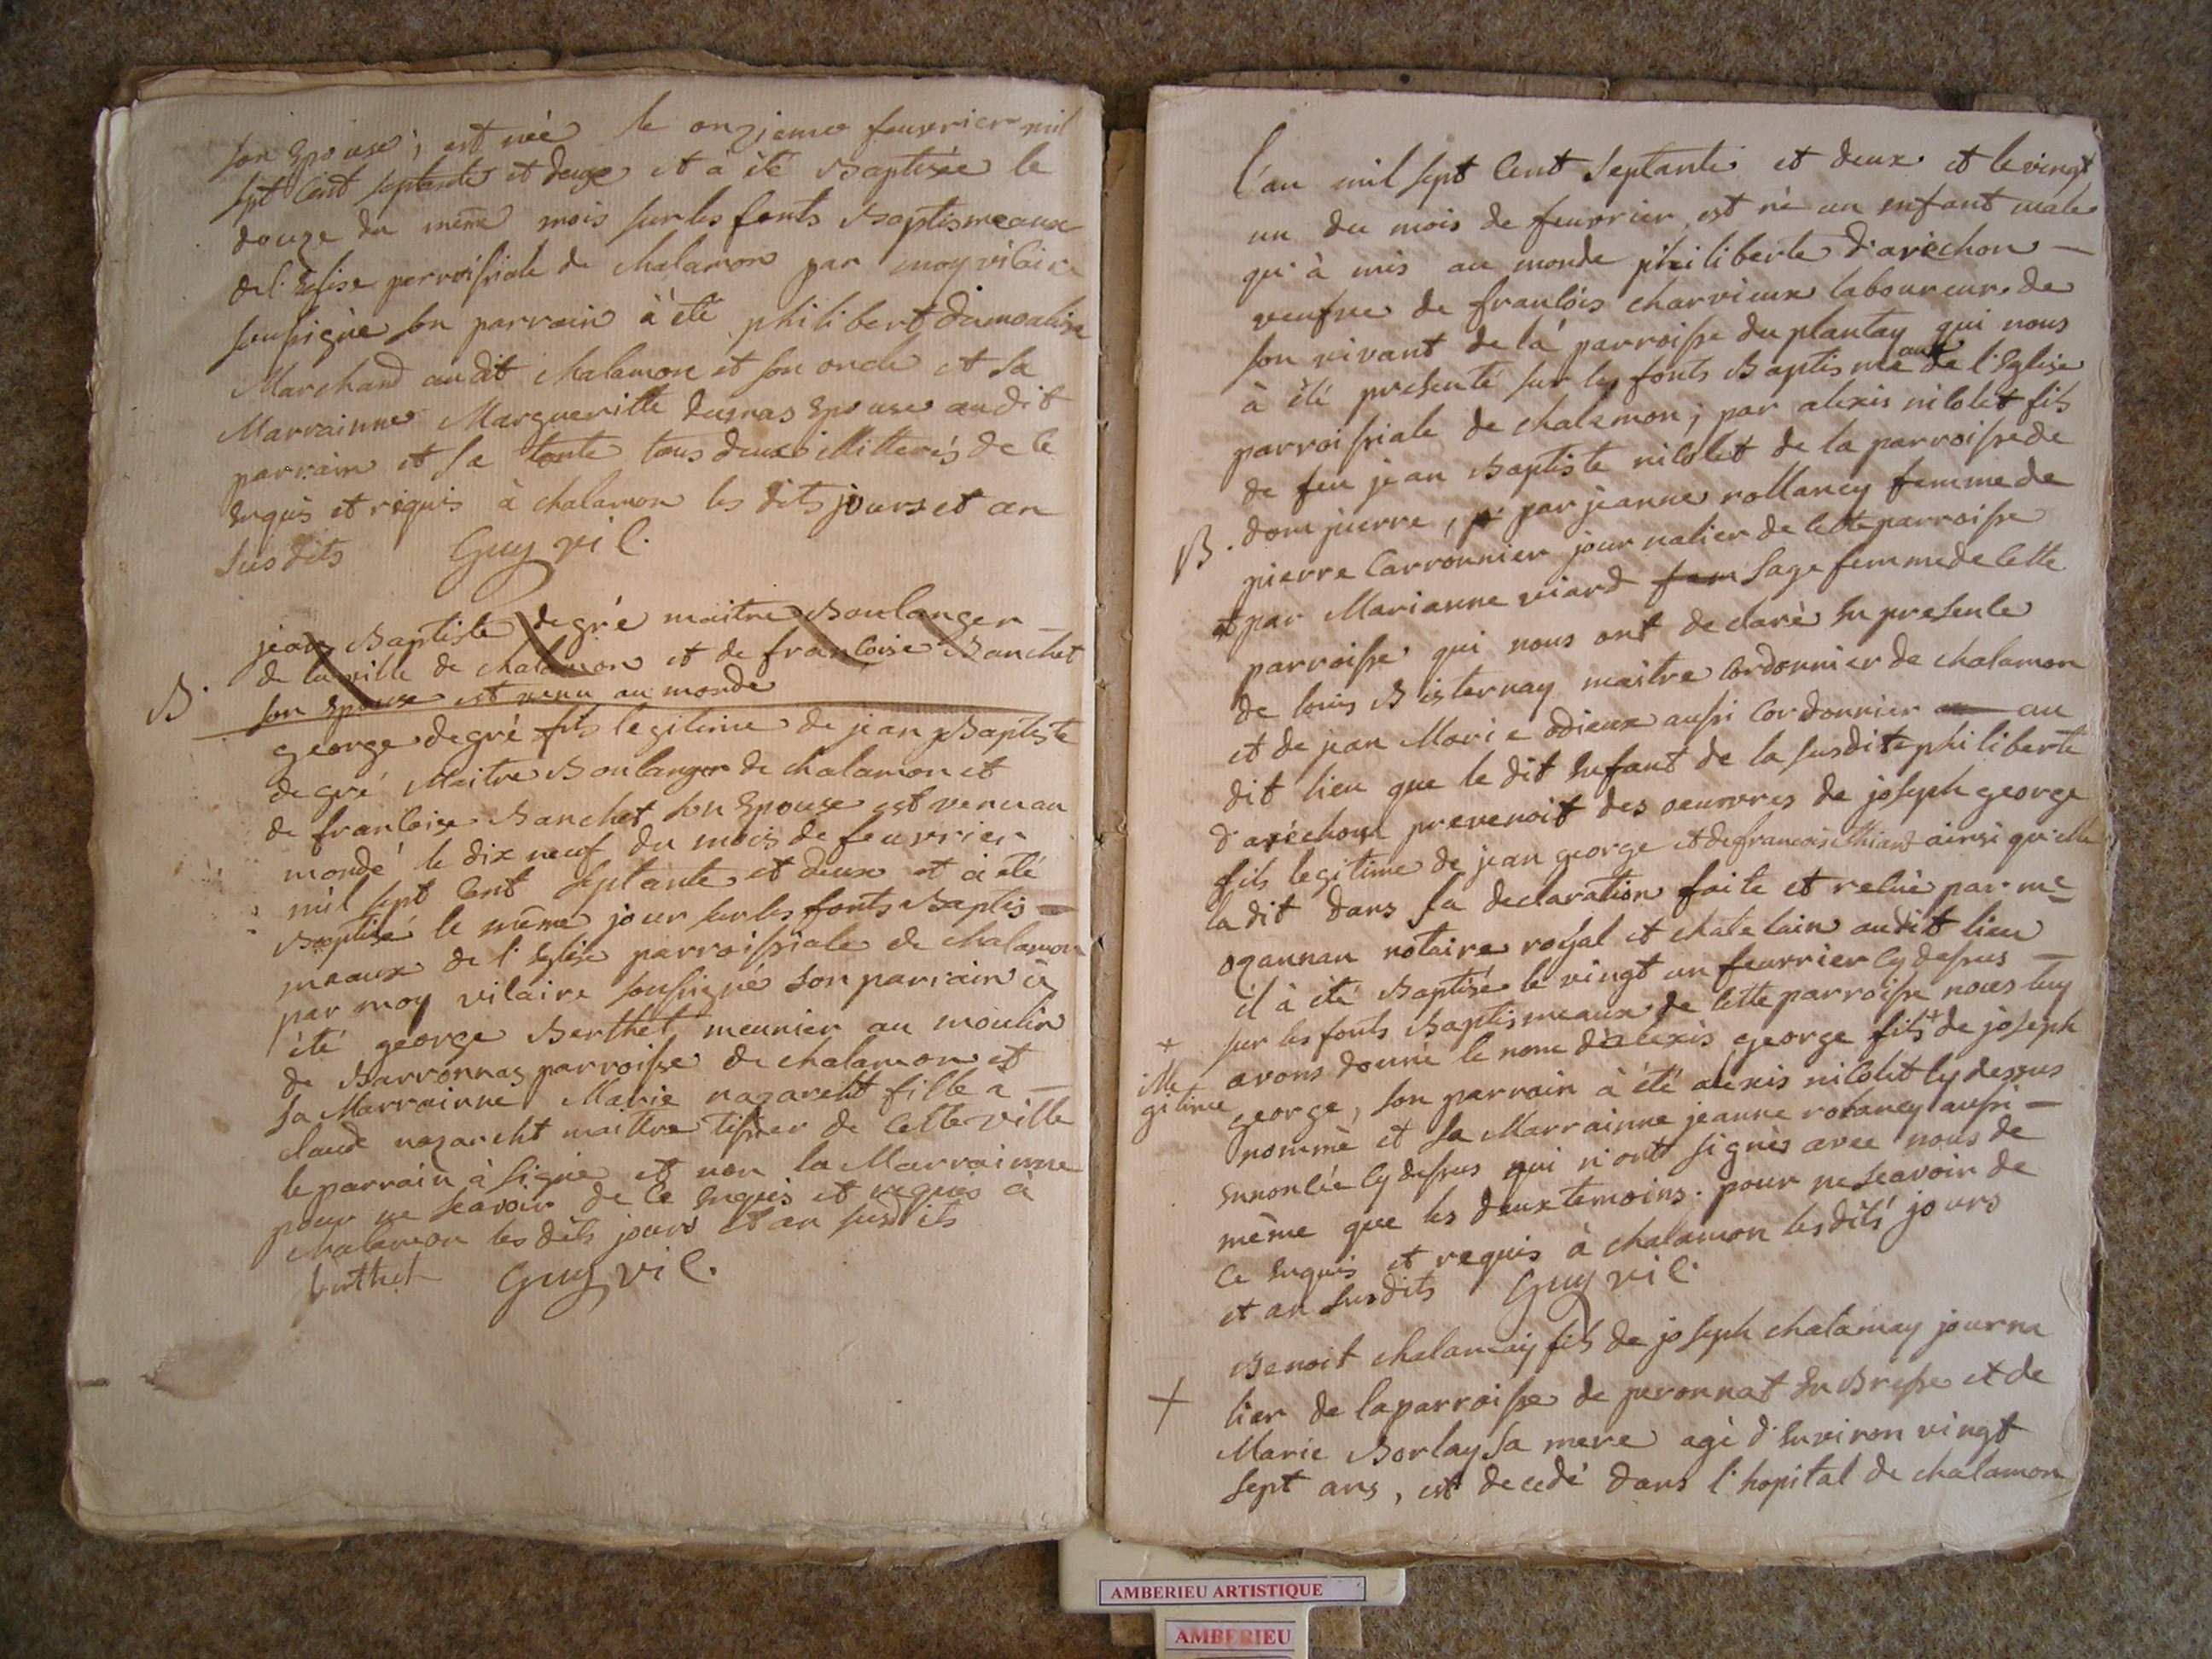 son Epouse, est née le onzieme feuvrier mil
sept Cent septante et deux et à été Baptisée le
douze du même mois sur les fonts Baptismeaux
de l'Eglise parroissiale de chalamon par moy vicaire
soussigné son parrain à été philibert
Marchand audit chalamon et son oncle et sa
Marrainne Margueritte dumas Epouse audit
parrain et sa tante tous deux illitterés de ce
Enquis et requis à chalamon les dits jours et an
susdits Guy vic.
jean Baptiste degré maitre Boulanger
de la ville de chalamon et de francoise Banchet
B. son Epouse est venu au monde
george degré fils legitime de jean Baptiste
degré Maitre Boulanger de chalamon et
de francoise Banchet son Epouse est venu au
monde le dix neuf du mois de feuvrier
mil sept Cent septante et deux et à été
Baptisé le même jour sur les fonts Baptis-
meaux de l'Eglise parroissiale de chalamon
par moy vicaire soussigné son parrain à
été george Berthet meunier au moulin
de Barronnas parroisse de chalamon et
sa Marrainne Marie nazareht fille a
claud nazareht maittre tissier de Cette ville
le parrain à signé et non la Marrainne
pour ne scavoir de ce Enquis et requis à
chalamon les dits jours et an susdits
berthet Guy vic.
l'an mil sept Cent septante et deux et le vingt
un du mois de feuvrier est né un enfant male
qu'à mis au monde philiberte d'aréchon
veufve de francois charvieux laboureur de
son vivant de la parroisse du plantay qui nous
à été presenté sur les fonts Baptismeaux de l'Eglise
parroissiale de chalamon, par alexis nicolet fils
de feu jean Baptiste nicolet de la parroisse de
B. dompierre, par jeanne rollancy femme de
pierre Carronnier journalier de Cette parroisse
et par Marianne viard fem sage femme de Cette
parroisse qui nous ont declaré En presence
de louis Bisternay maitre Cordonnier de chalamon
et de jean Marie odieux aussi Cordonnier au
dit lieu que le dit Enfant de la susdite philiberte
d'aréchon prevenoit des oeuvres de joseph george
fils legitime de jean george et de francoise Thiard ainsi qu'elle
la dit dans sa declaration faite et reçue par me
ogannan notaire royal et chatelain audit lieu
il à été Baptisé le vingt un feuvrier Cy dessus
+ sur les fonts Baptismeaux de Cette parroisse nous luy
ille avons donné le nom d'alexis george fils + de joseph
gitime george, son parrain à été alexis nicolet Cy dessus
nommé et sa Marrainne jeanne rolancy aussi
Ennoncée Cy dessus qui n'ont signés avec nous de
même que les deux temoins pour ne scavoir de
ce Enquis et requis à chalamon les dits jours
et an susdits Guy vic.
Benoit chalamay fils de joseph chalamay journa
+ lier de la parroisse de peronnat En Bresse et de
Marie Borlay sa mere agé d'Environ vingt
sept ans, est decedé dans l'hopital de chalamon
AMBERIEU ARTISTIQUE
AMBERIEU